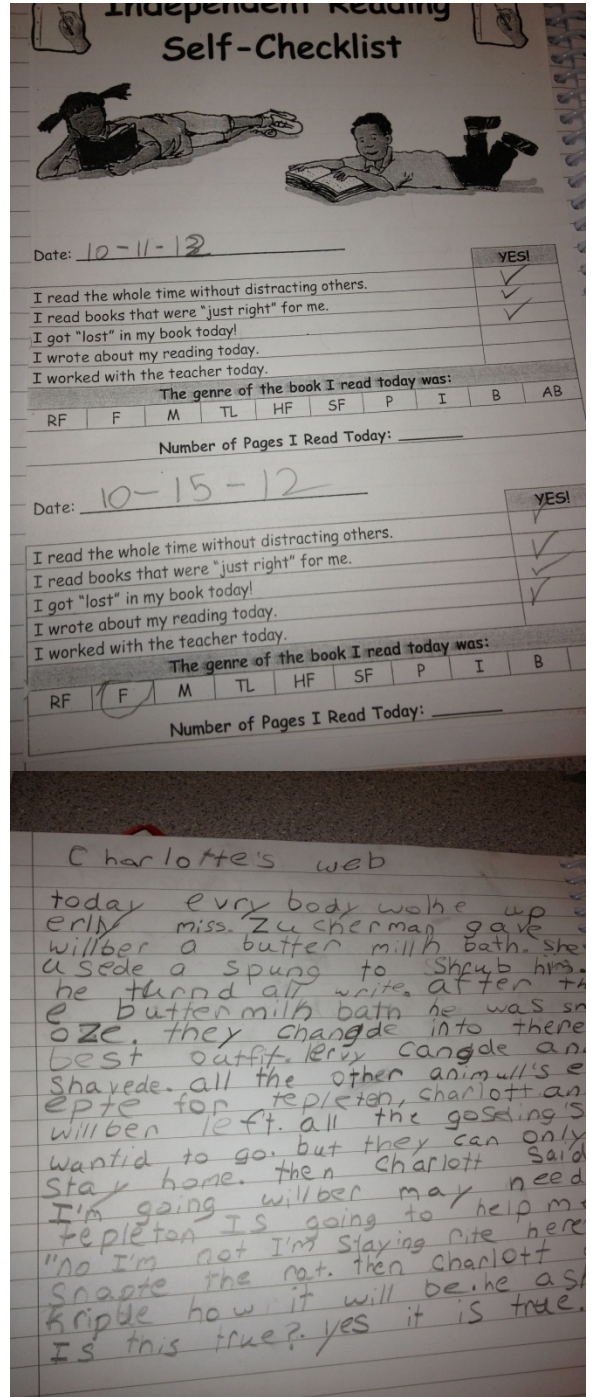 Independent Reading
Self-Checklist
Date: 10-11-12
YES!
I read the whole time without distracting others.
I read books that were "just right" for me.
I got "lost" in my book today!
I wrote about my reading today.
I worked with the teacher today.
The genre of the book I read today was:
RF F M TL HF SF P I B AB
Number of Pages I Read Today:
Date: 10-15-12
YES!
I read the whole time without distracting others.
I read books that were "just right" for me.
I got "lost" in my book today!
I wrote about my reading today.
I worked with the teacher today.
The genre of the book I read today was:
RF F M TL HF SF P I B
Number of Pages I Read Today:
Charlotte's web
today evry body woke up
erly miss. Zucherman gave
willber a butter milk bath. she
usede a spung to Shrub him.
he turnd all write. after th
e buttermilk bath he was sn
oze. they changde into there
best outfit. lervy cangde an
shavede. all the other animull's e
epte for tepleton, charlott an
willben left. all the gosding's
wantid to go. but they can only
stay home. then charlott said
I'm going willber may need
tepleton Is going to help m
"no I'm not I'm staying rite here
snapte the rat. then charlott
how it will be. he as
Is this true? yes it is true.